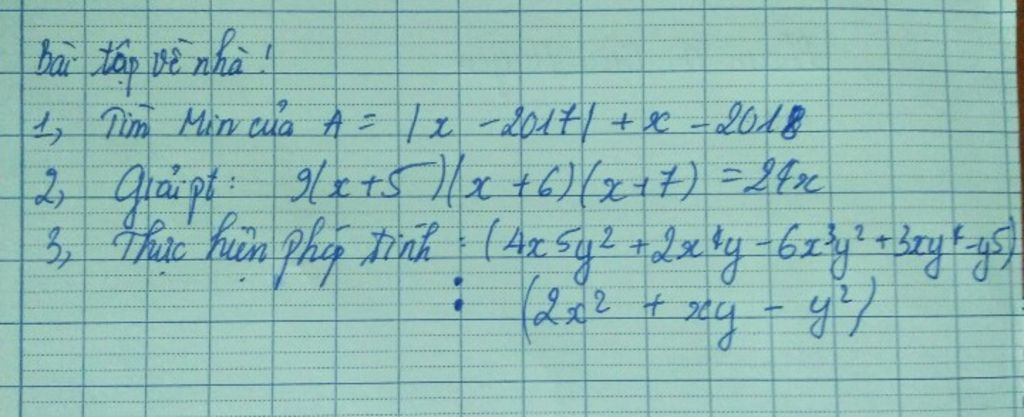 Bài tập về nhà!
1, Tìm Min của A = |x - 2017| + x - 2018
2, Giải pt: 9(x+5)(x+6)(x+7) = 24x
3, Thực hiện phép tính: (4x5y² + 2x⁴y - 6x³y² + 3xy⁴ - y5)
: (2x² + xy - y²)